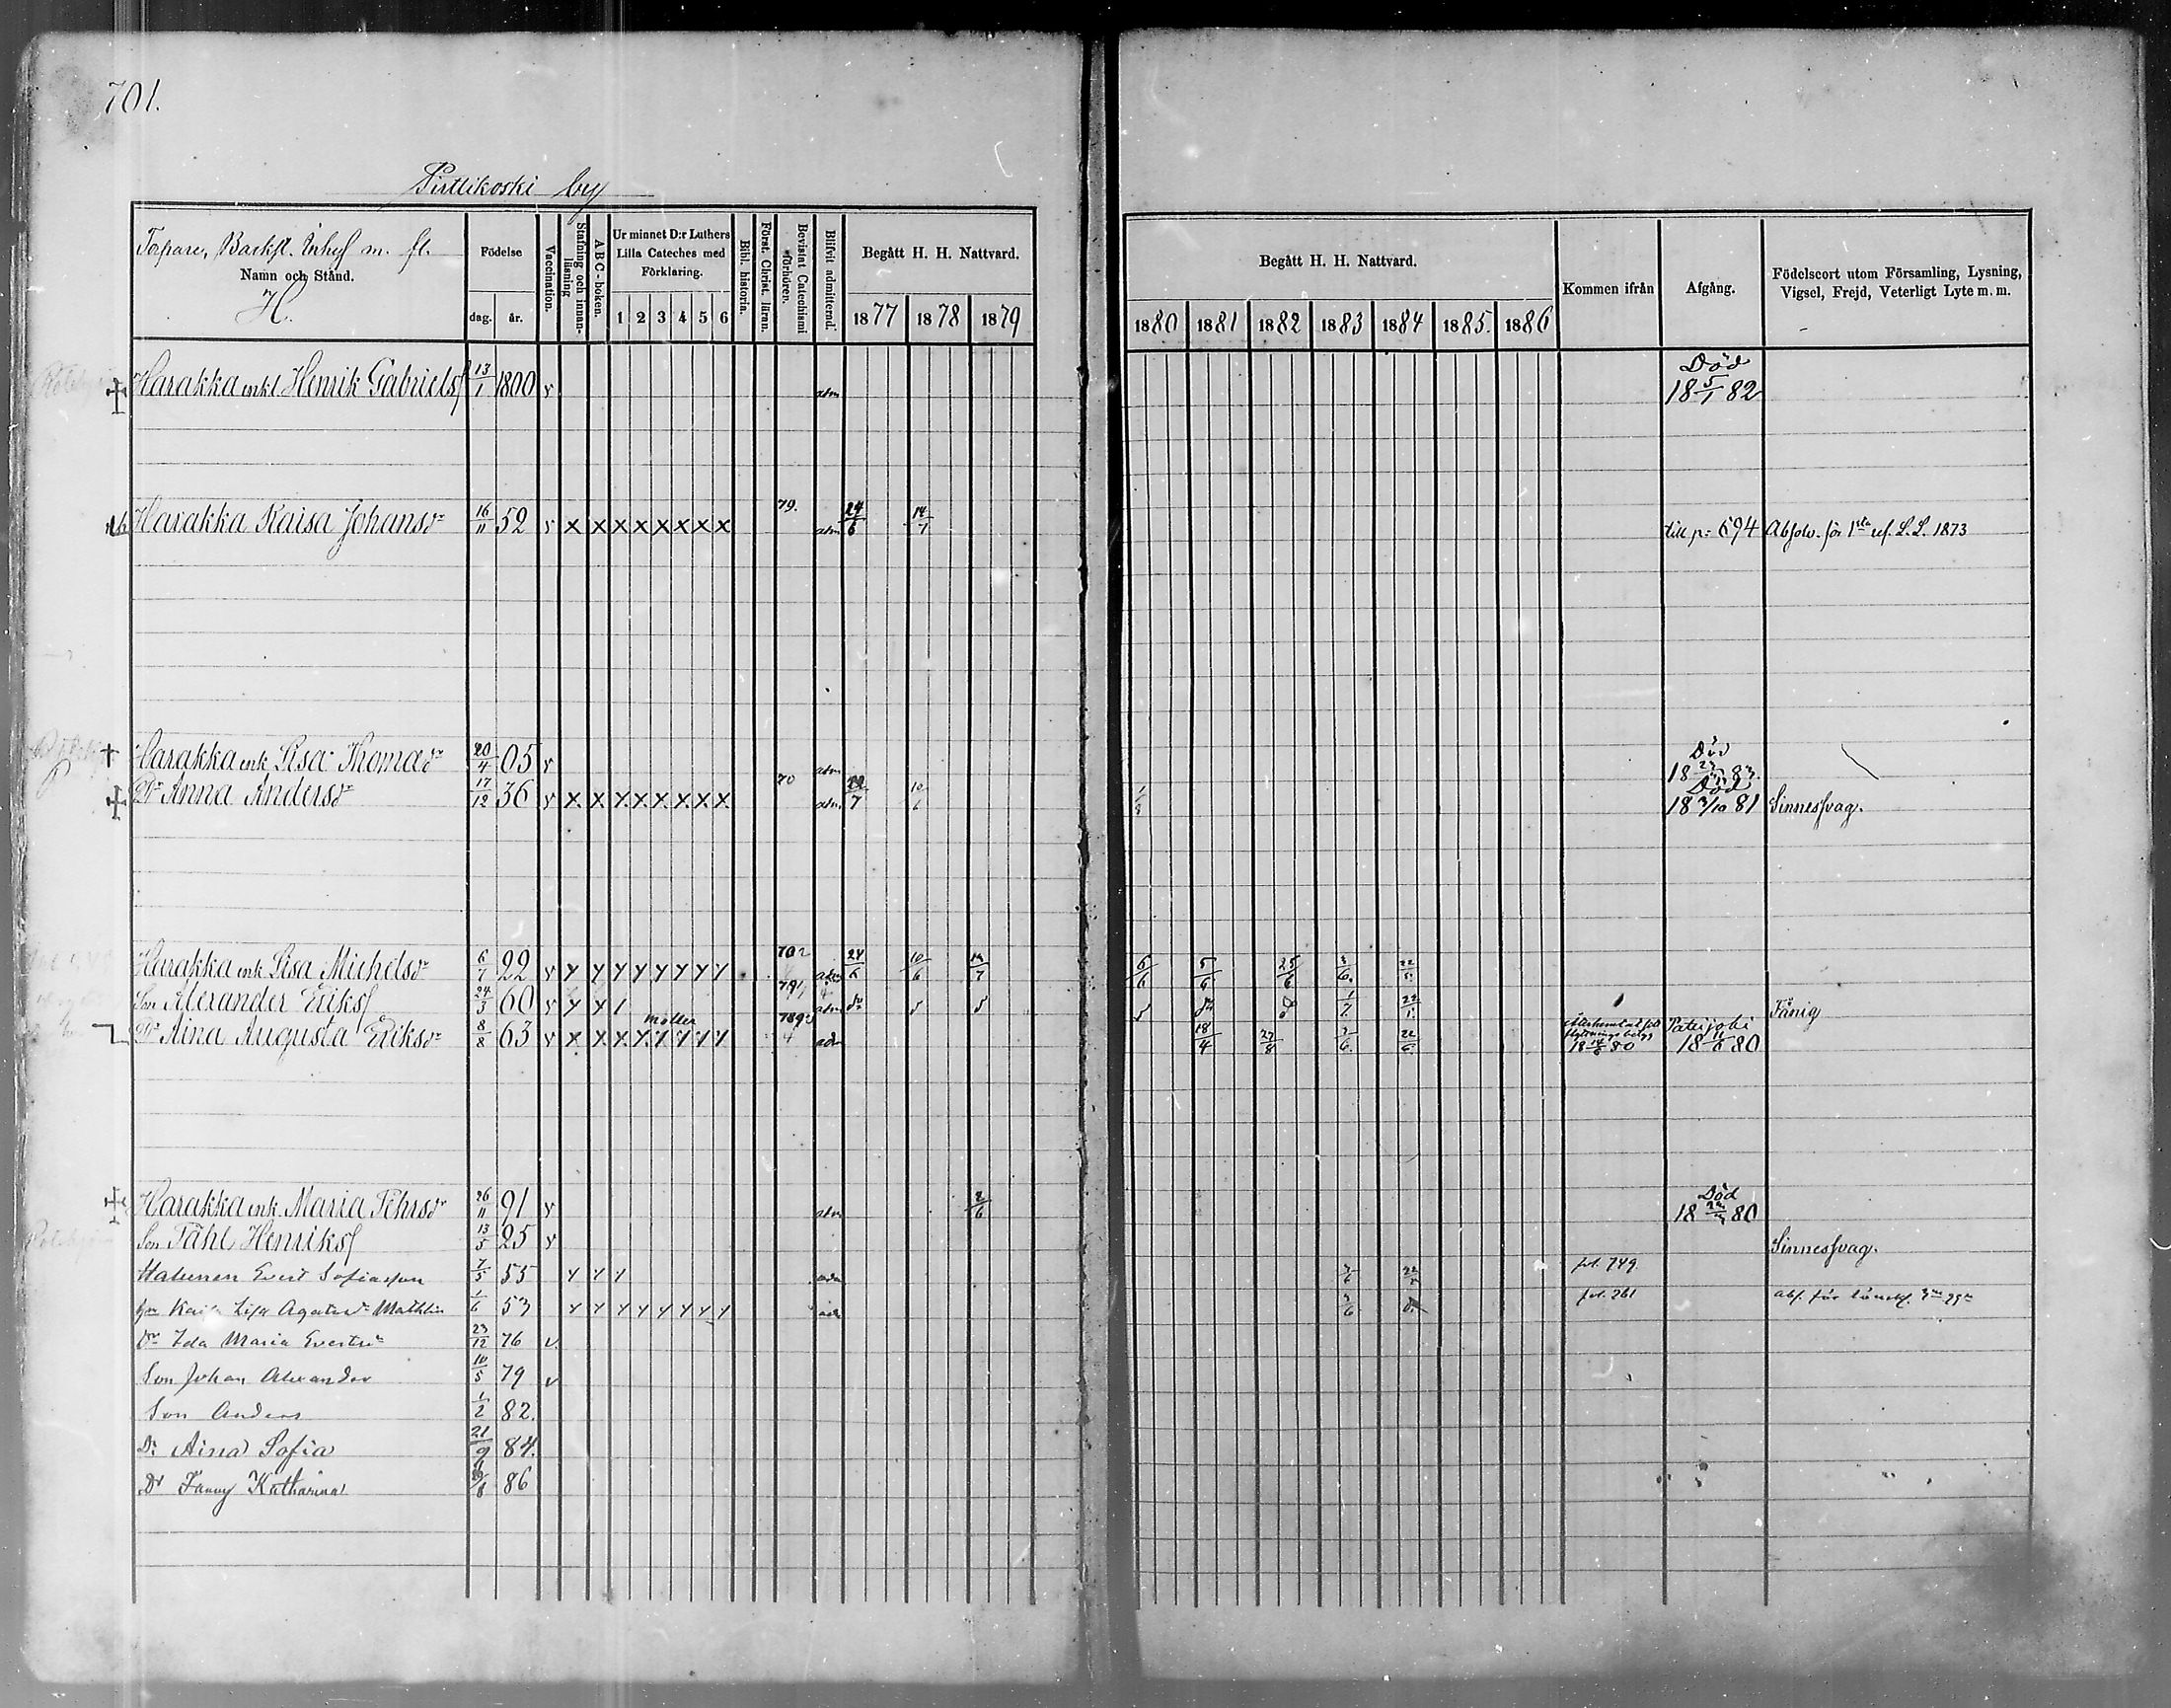 701.
Pirttikoski by
Torpare, Backst. Inhys m. fl.
Namn och Stånd.
H.
Födelse
dag. år.
Vaccination.
Stafning och innanläsning
ABC-boken.
Ur minnet D:r Luthers Lilla Cateches med Förklaring.
1 2 3 4 5 6
Bibl. historia.
Först. Christ. läran.
Bevistat Catechismi förhören.
Blifvit admitterad.
Begått H. H. Nattvard.
1877 1878 1879
Begått H. H. Nattvard.
1880 1881 1882 1883 1884 1885. 1886
Kommen ifrån
Afgång.
Födelseort utom Församling, Lysning, Vigsel, Frejd, Veterligt Lyte m. m.
Harakka enkl. Henrik Gabrielsf 13/1 1800 v adm Död 18 5/1 82
Harakka Kaisa Johansdr 16/11 52 v x x x x x x x x 79. adm 24/6 14/7 till p. 694 Absolv. för 1sta L.S. 1873
Harakka enk. Lisa Thomasdr 20/4 05 v adm Död 18 83.
Dr Anna Andersdr 17/12 36 v x x x x x x x x 70 adm 22/7 10/6 Död 18 3/10 81 Sinnessvag.
Harakka enk. Lisa Michelsdr 6/7 22 v x x x x x x x x adm 24/6 10/6 14/7 6/6 5/6 25/6 3/6. 22/5.
Son Alexander Eriksf 24/3 60 v x x 1 adm 1/7 Fånig
Dr Aina Augusta Eriksdr 8/8 63 v x x x x x x x x adm 18/4 27/8 3/6. 22/6. 18 80 Patijoki 18 11/6 80
Harakka enk. Maria Pehrsdr 26/11 91 v adm 2/6 Död 18 80
Son Påhl Henriksf 13/5 25 v Sinnessvag.
Halunen Evert Sofiasson 7/5 55 x x 1 adm 3/6 fol. 749.
Kaisa Lisa Agatasdr Mathlin 1/6 53 x x x x x x x x adm 3/6 fol. 261 abs. för
Dr Ida Maria Evertsdr 23/12 76 v.
Son Johan Alexander 10/5 79 v
Son Anders 1/2 82.
Dr Aina Sofia 21/9 84.
Dr Fanny Katharina 86